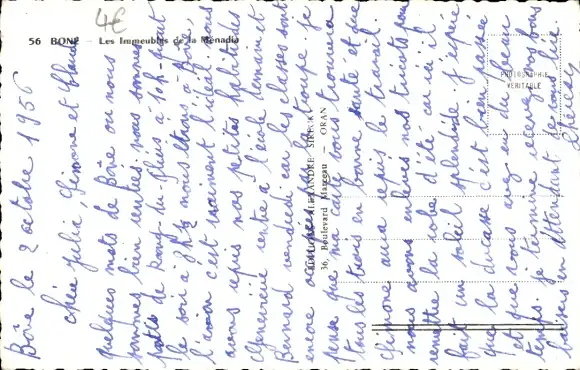 4€
56 BONE - Les Immeubles de la Ménadia
PHOTOGRAPHIE
VÉRITABLE
EDITIONS ALEXANDRE SIROCK
36, Boulevard Marceau - ORAN
Bône le 2 octobre 1956
Chère Julia, Simone et
Quelques mots de Bône où nous
sommes bien rentrés nous sommes
partis de Pont-du-Fahs à 10h et
le soir à 8h½ nous étions à Bône,
l'avion c'est vraiment l'idéal nous
avons repris nos petites habitudes
Geneviève rentre à l'école demain et
Bernard vendredi car les classes sont
encore occupées par la troupe je
pense que ma carte vous trouvera
tous les trois en bonne santé et que
Simone aura repris le travail.
nous avons enlevés nos tricots pour
remettre la robe d'été car ici il
fait un soleil splendide. J'espère
que la ducasse c'est bien passée
et que vous avez eu du beau
temps. je termine recevez tous trois
baisers en attendant de vous lire.